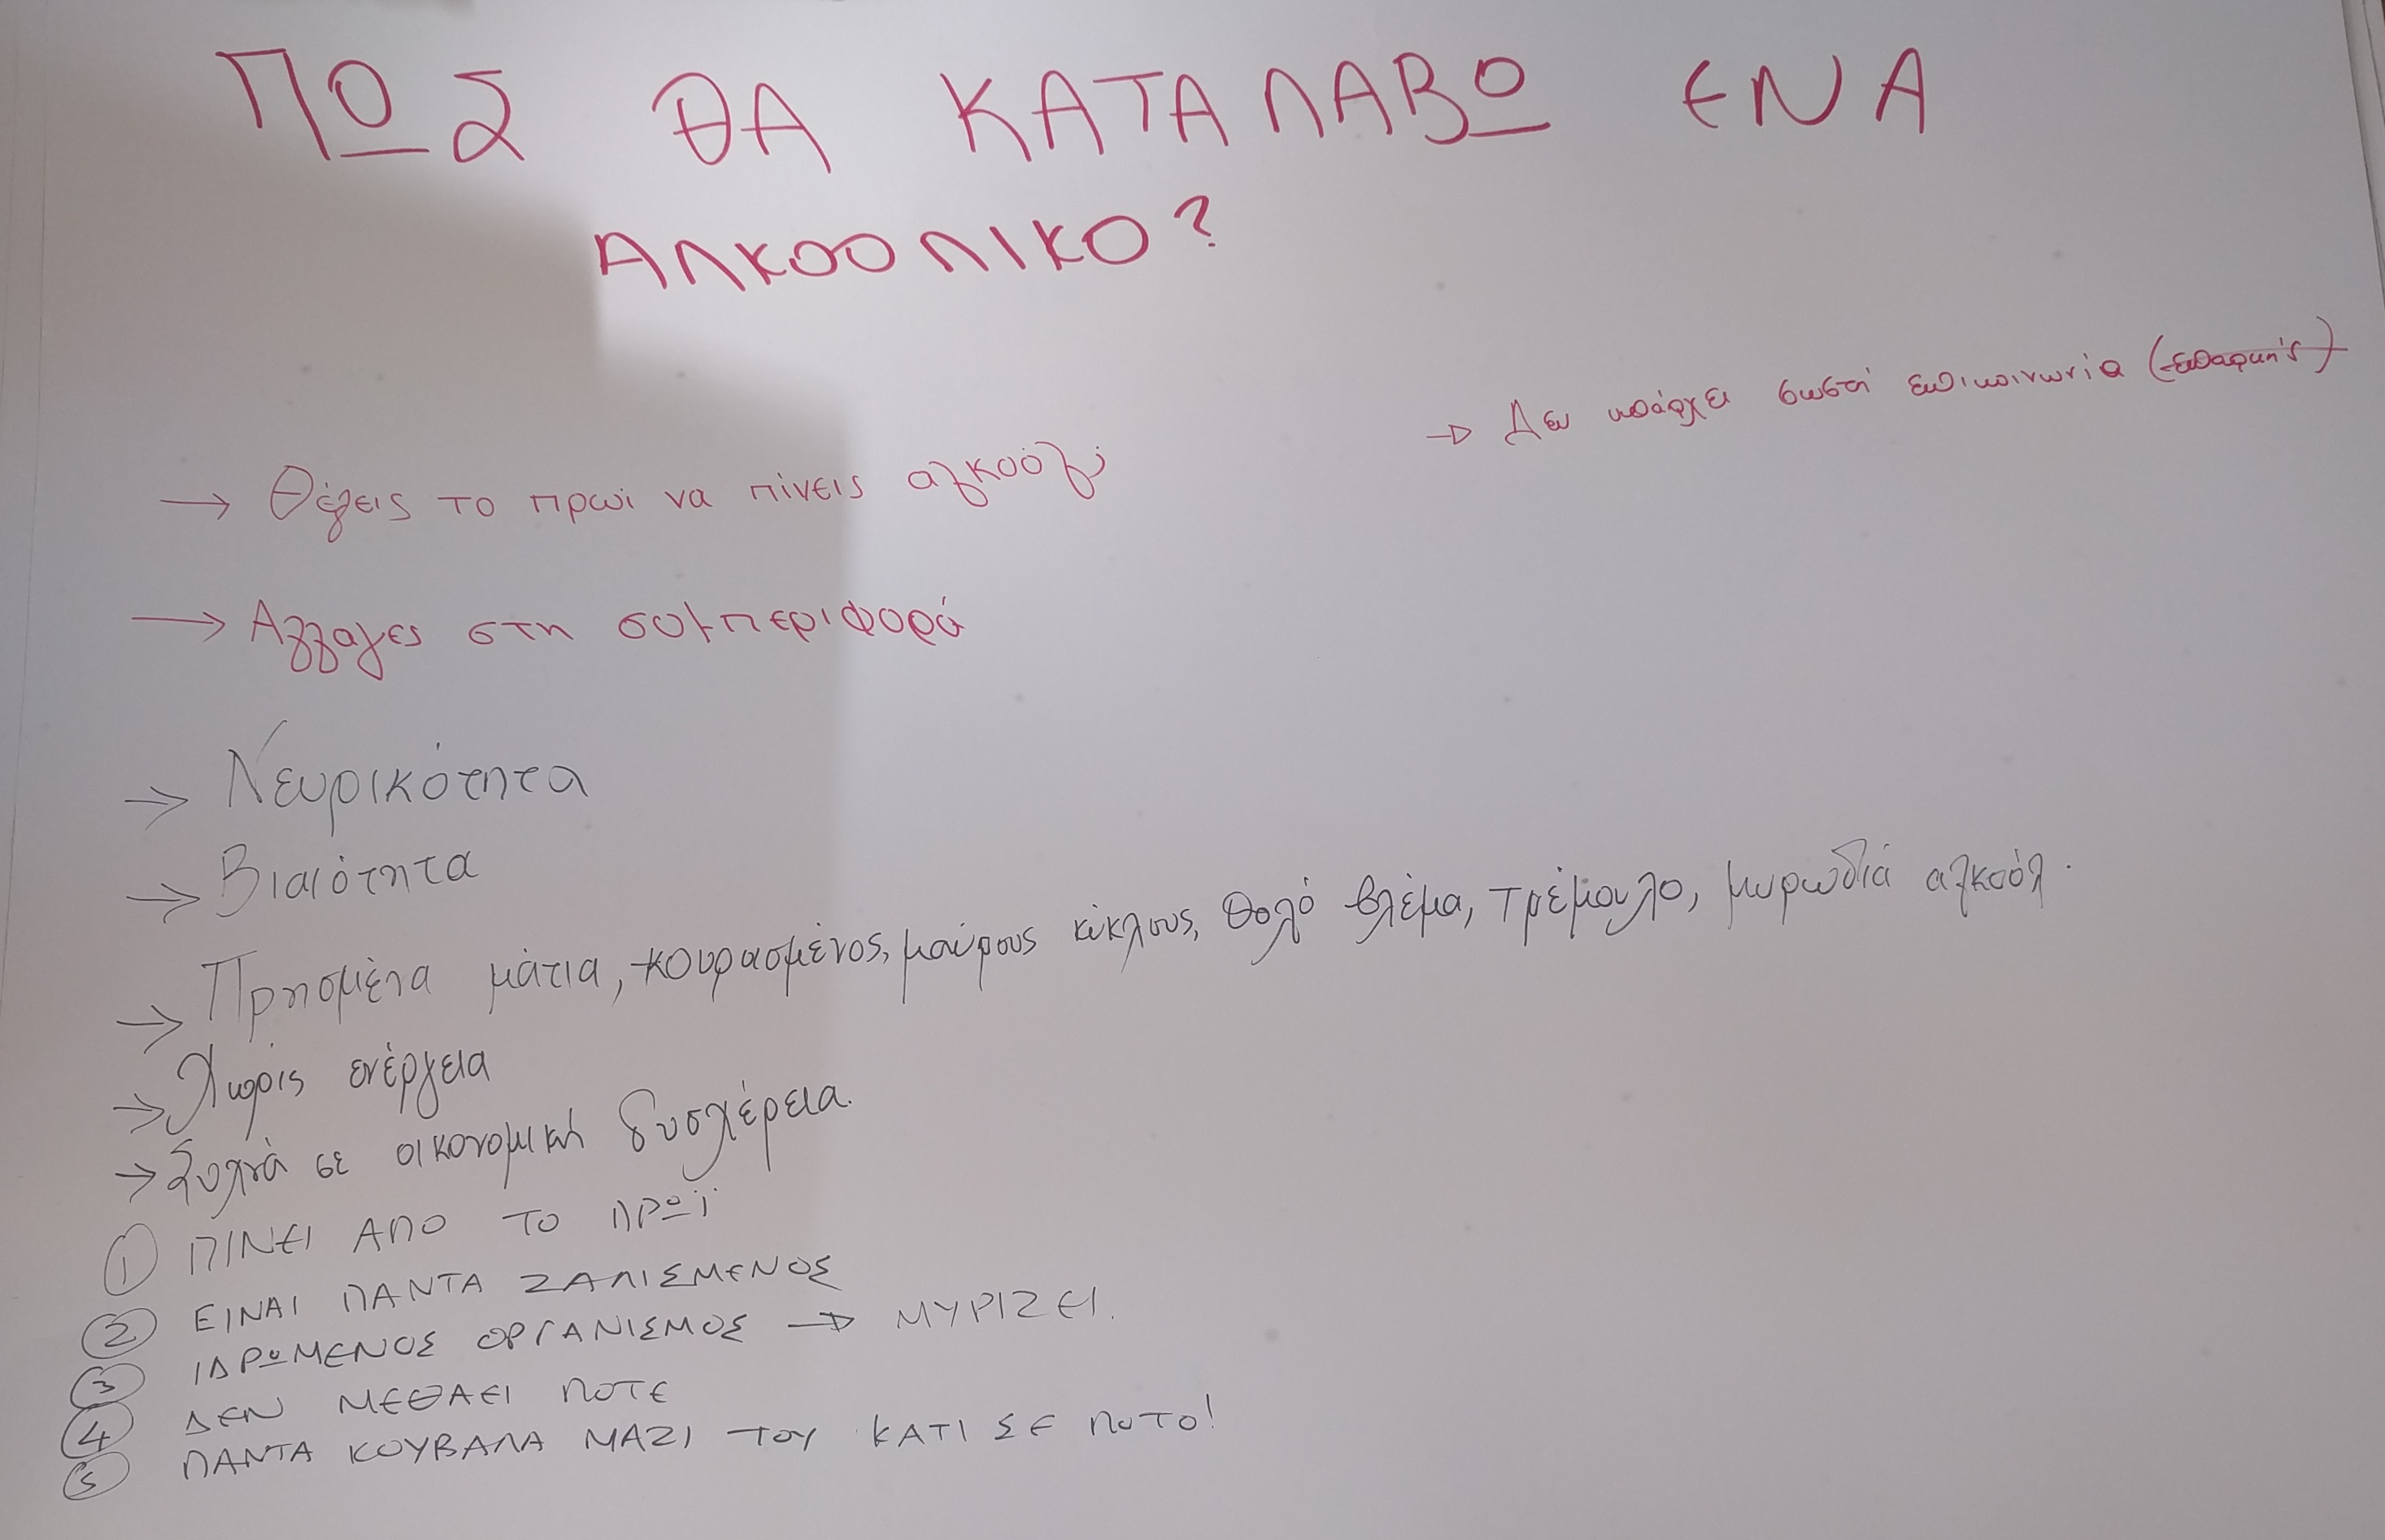 ΠΩΣ ΘΑ ΚΑΤΑΛΑΒΩ ΕΝΑ
ΑΛΚΟΟΛΙΚΟ?
→ Δεν υπάρχει σωστή επικοινωνία (επαφής)
→ Θέλεις το πρωί να πίνεις αλκοόλ;
→ Αλλαγες στη συμπεριφορά
→ Νευρικότητα
→ Βιαιότητα
→ Πρησμένα μάτια, κουρασμένος, μαύρους κύκλους, θολό βλέμα, τρέμουλο, μυρωδιά αλκοόλ.
→ Χωρίς ενέργεια
→ Συχνά σε οικονομική δυσχέρεια.
① ΠΙΝΕΙ ΑΠΟ ΤΟ ΠΡΩΪ
② ΕΙΝΑΙ ΠΑΝΤΑ ΖΑΛΙΣΜΕΝΟΣ
③ ΙΔΡΩΜΕΝΟΣ ΟΡΓΑΝΙΣΜΟΣ → ΜΥΡΙΖΕΙ.
④ ΔΕΝ ΜΕΘΑΕΙ ΠΟΤΕ
⑤ ΠΑΝΤΑ ΚΟΥΒΑΛΑ ΜΑΖΙ ΤΟΥ ΚΑΤΙ ΣΕ ΠΟΤΟ!